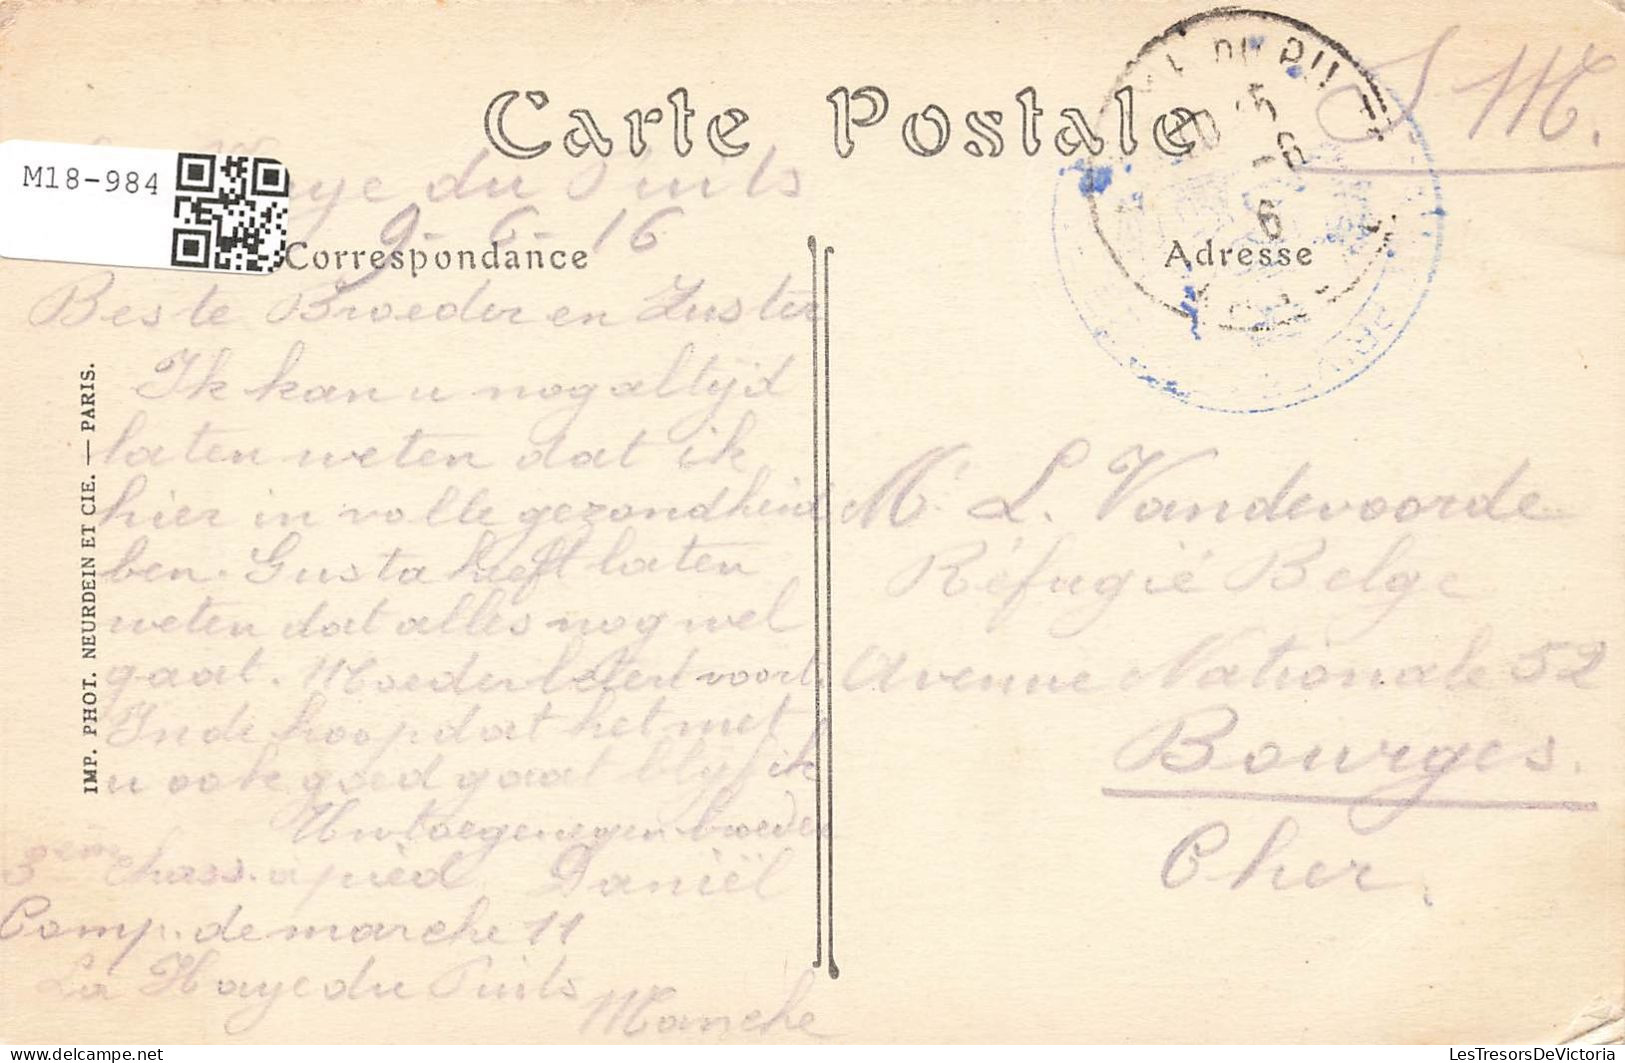 Carte Postale
S. M.
M18-984
Haye du Puits
9-6-16
Correspondance
Adresse
Beste Broeder en Zuster
Ik kan u nog altyd
laten weten dat ik
hier in volle gezondheid
ben. Gusta heeft laten
weten dat alles nog wel
gaat. Moeder betert voort.
In de hoop dat het met
u ook goed gaat blyf ik
Uw toegenegen broeder
Daniël
3eme chass. a pied
Comp. de marche 11
La Haye du Puits
Manche
M. L. Vandevoorde
Réfugié Belge
Avenue Nationale 52
Bourges.
Cher.
IMP. PHOT. NEURDEIN ET CIE. — PARIS.
LesTresorsDeVictoria